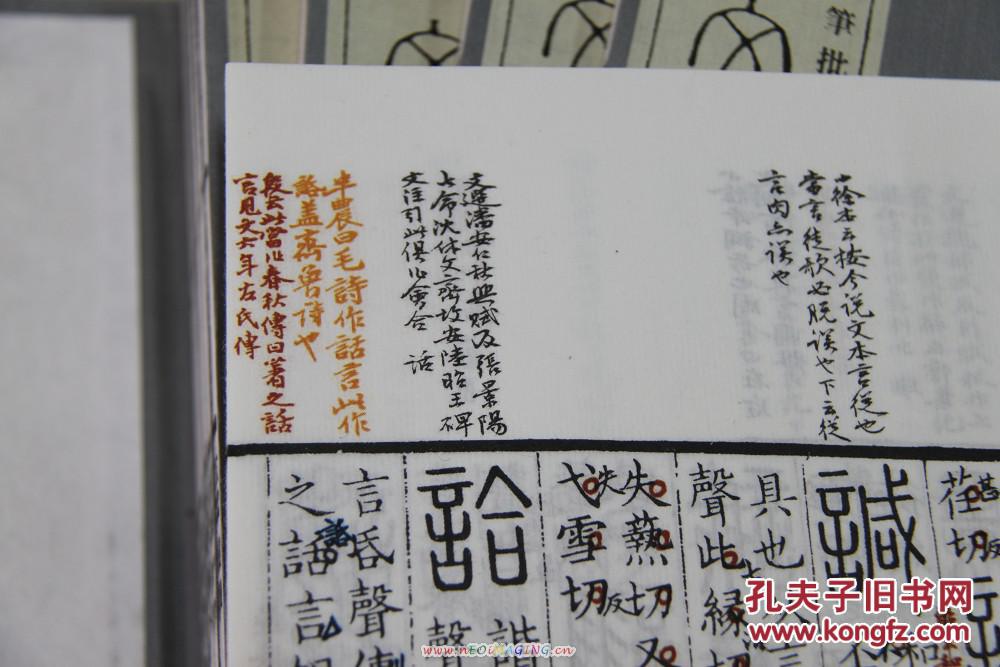 筆批
今说文本言從也
當言徒歌必脱誤也下云從
言肉亦誤也
文選潘安仁秋興賦及張景陽
七命沈休文齊故安陸昭王碑
文注引此俱作會合 話
半農曰毛詩作話言此作
蓋齊魯詩也
段云此當作春秋傳曰著之話
言見文六年左氏傳
甚反
荏切
諴
具也
聲此縁切
失爇切又
弋雪切
反
詥 諧
話 聲
言昏聲傳
之話言
孔夫子旧书网
www.kongfz.com
www.nEOiMAGING.cn